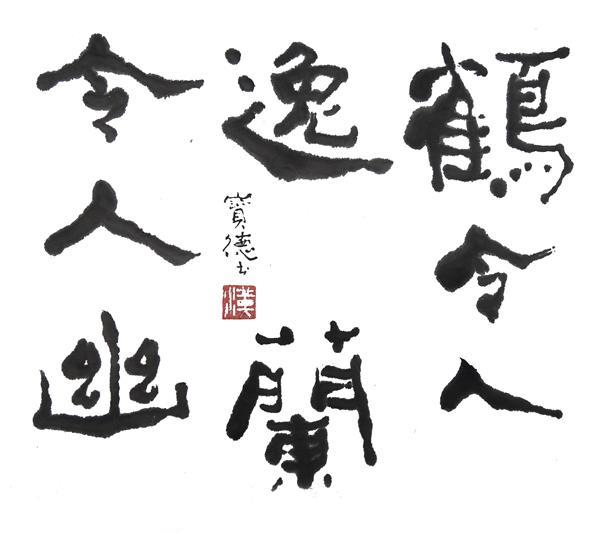 鶴令人
逸蘭
令人幽
寶德书
漢